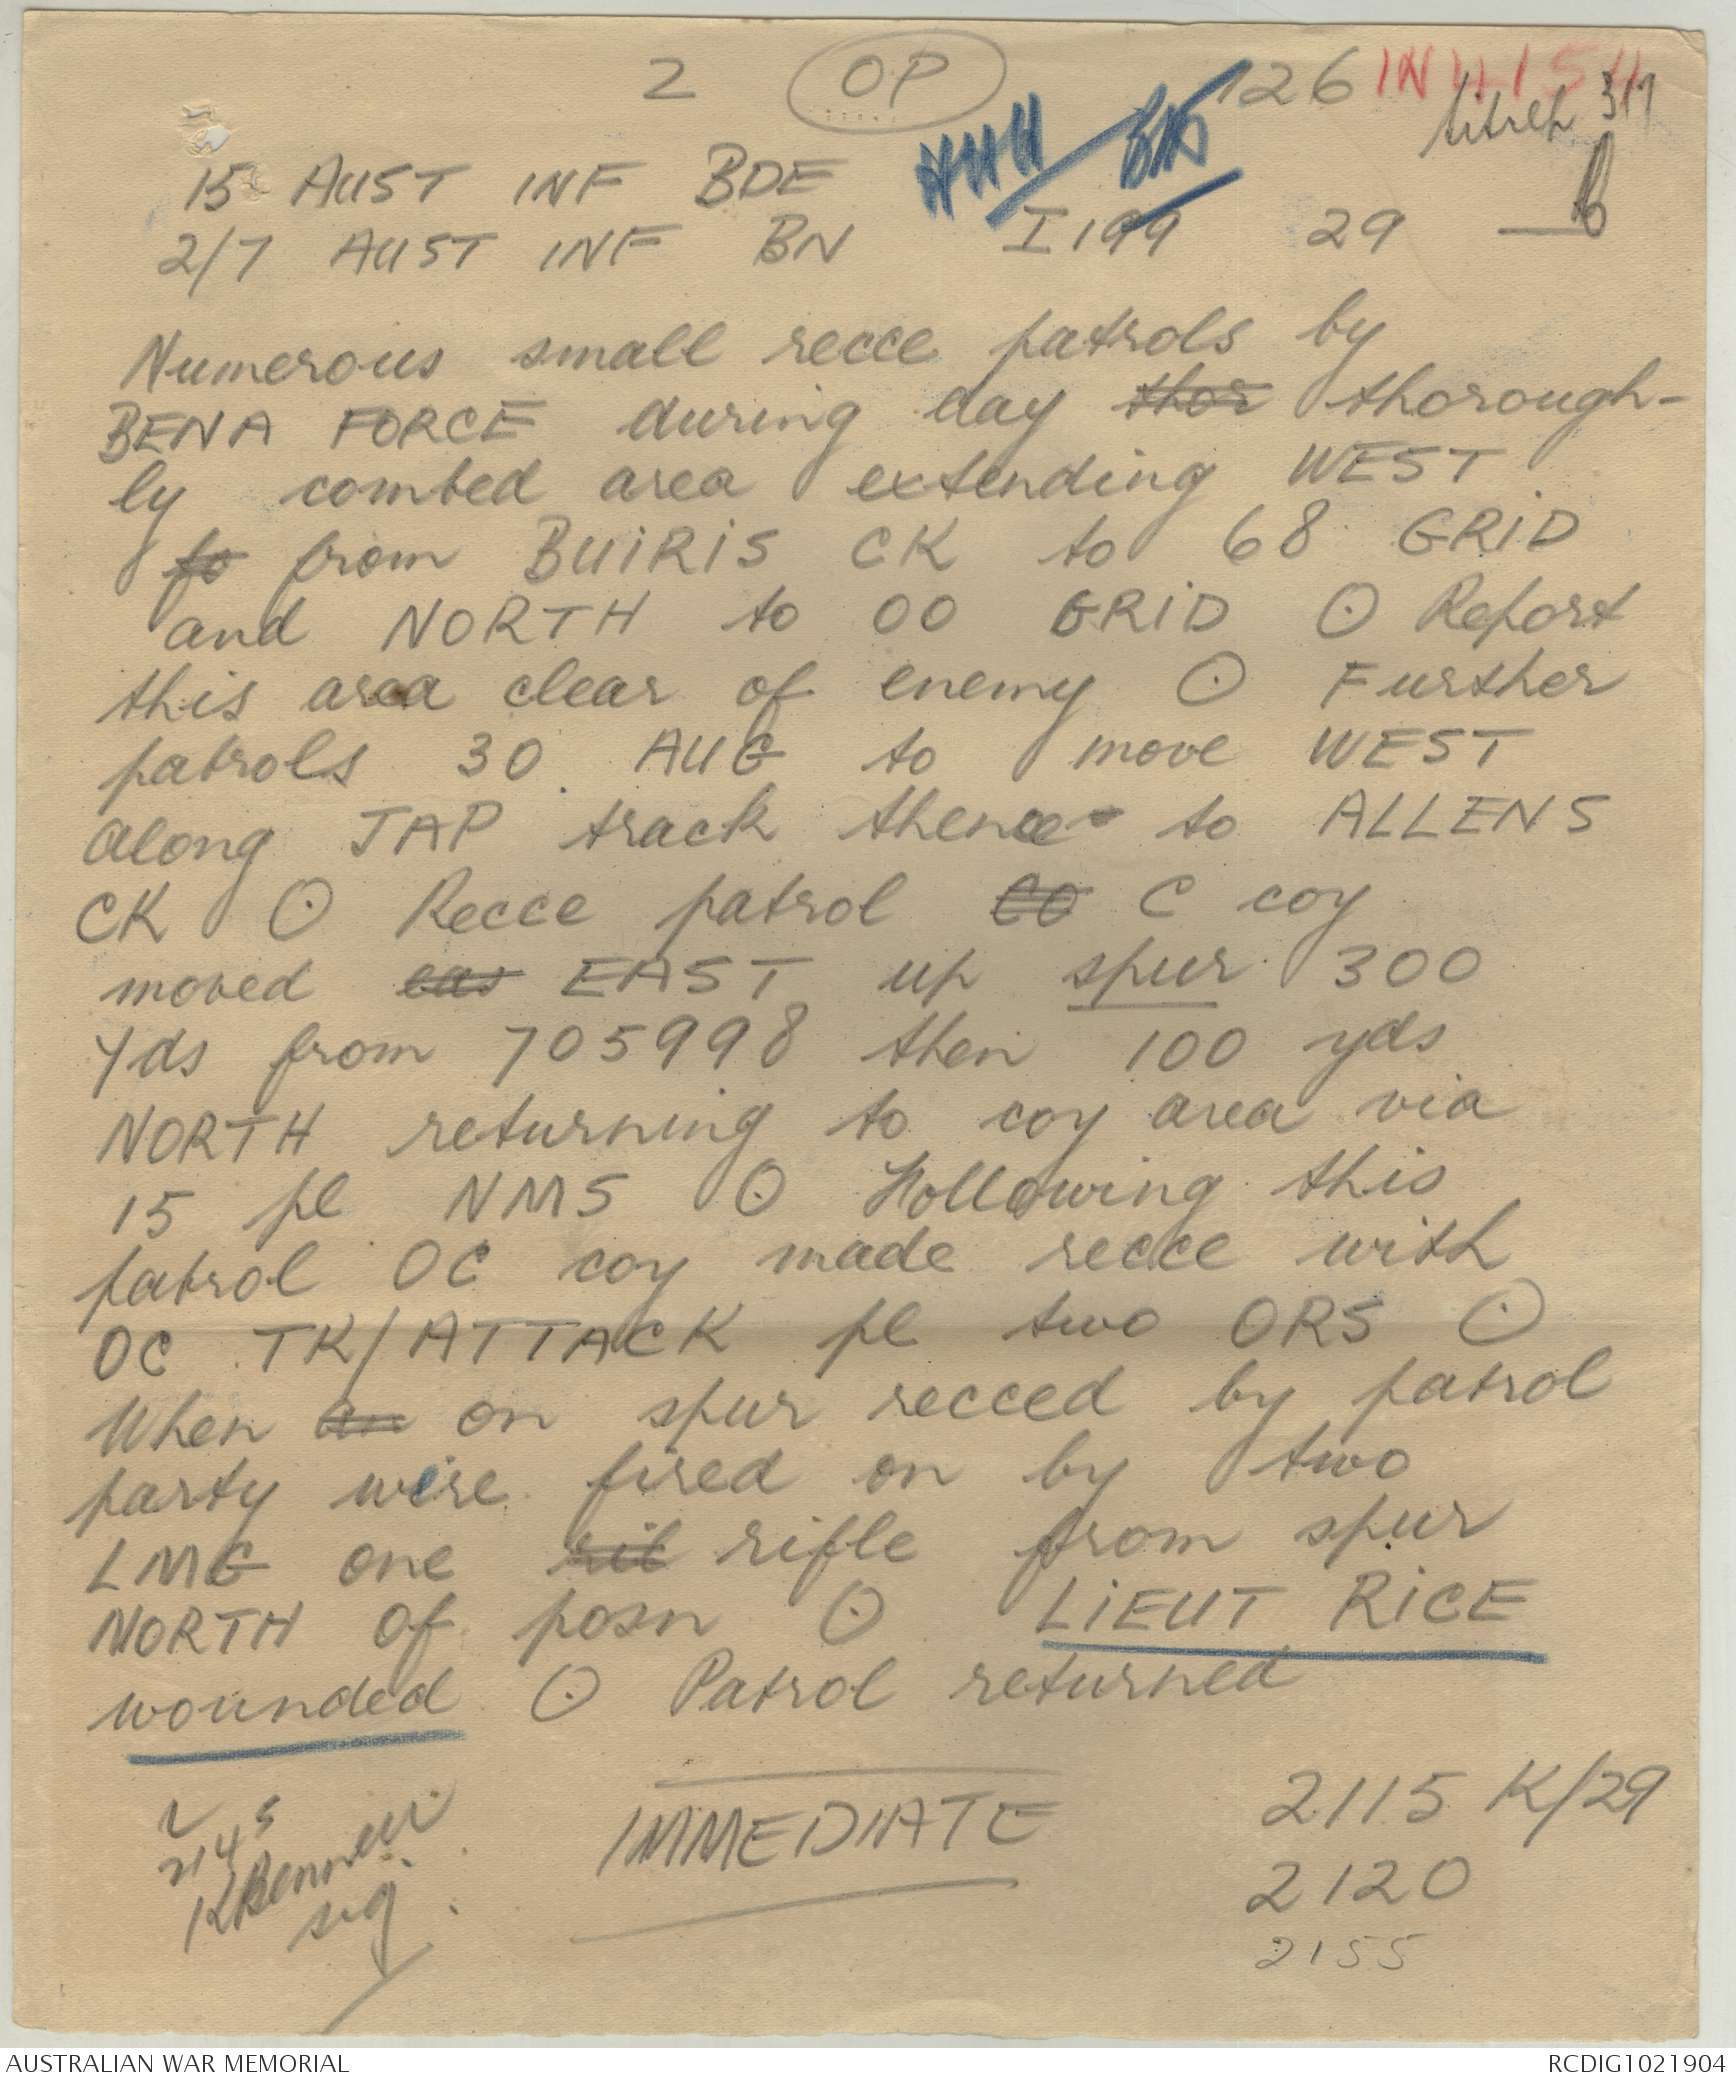 2 OP 126 IN 4154
319
15 AUST INF BDE
2/7 AUST INF BN I 199 29
Numerous small recce patrols by
BENA FORCE during day thor thorough-
ly combed area extending WEST
fo from BUIRIS CK to 68 GRID
and NORTH to 00 GRID ⊙ Report
this area clear of enemy ⊙ Further
patrols 30 AUG to move WEST
along JAP track thence to ALLENS
CK ⊙ Recce patrol CO C coy
moved eas EAST up spur 300
yds from 705998 then 100 yds
NORTH returning to coy area via
15 pl NMS ⊙ Following this
patrol OC coy made recce with
OC TK/ATTACK pl two ORS ⊙
When an on spur recced by patrol
party were fired on by two
LMG one rif rifle from spur
NORTH of posn ⊙ LIEUT RICE
wounded ⊙ Patrol returned
2145
KBennett
sig.
IMMEDIATE
2115 K/29
2120
2155
AUSTRALIAN WAR MEMORIAL
RCDIG1021904